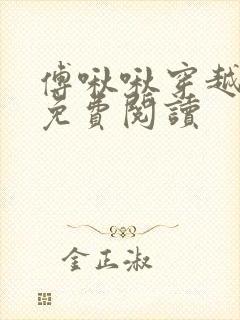 傅啾啾穿越
免費閱讀
金正淑